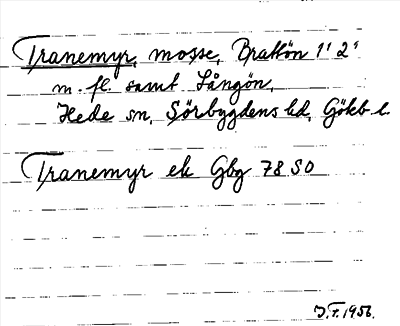 Tranemyr, mosse, Brattön 1¹ 2¹
m. fl. samt Långön,
Hede sn, Sörbygdens hd, Gökb l.
Tranemyr ek Gbg 78 SO
J.F. 1956.